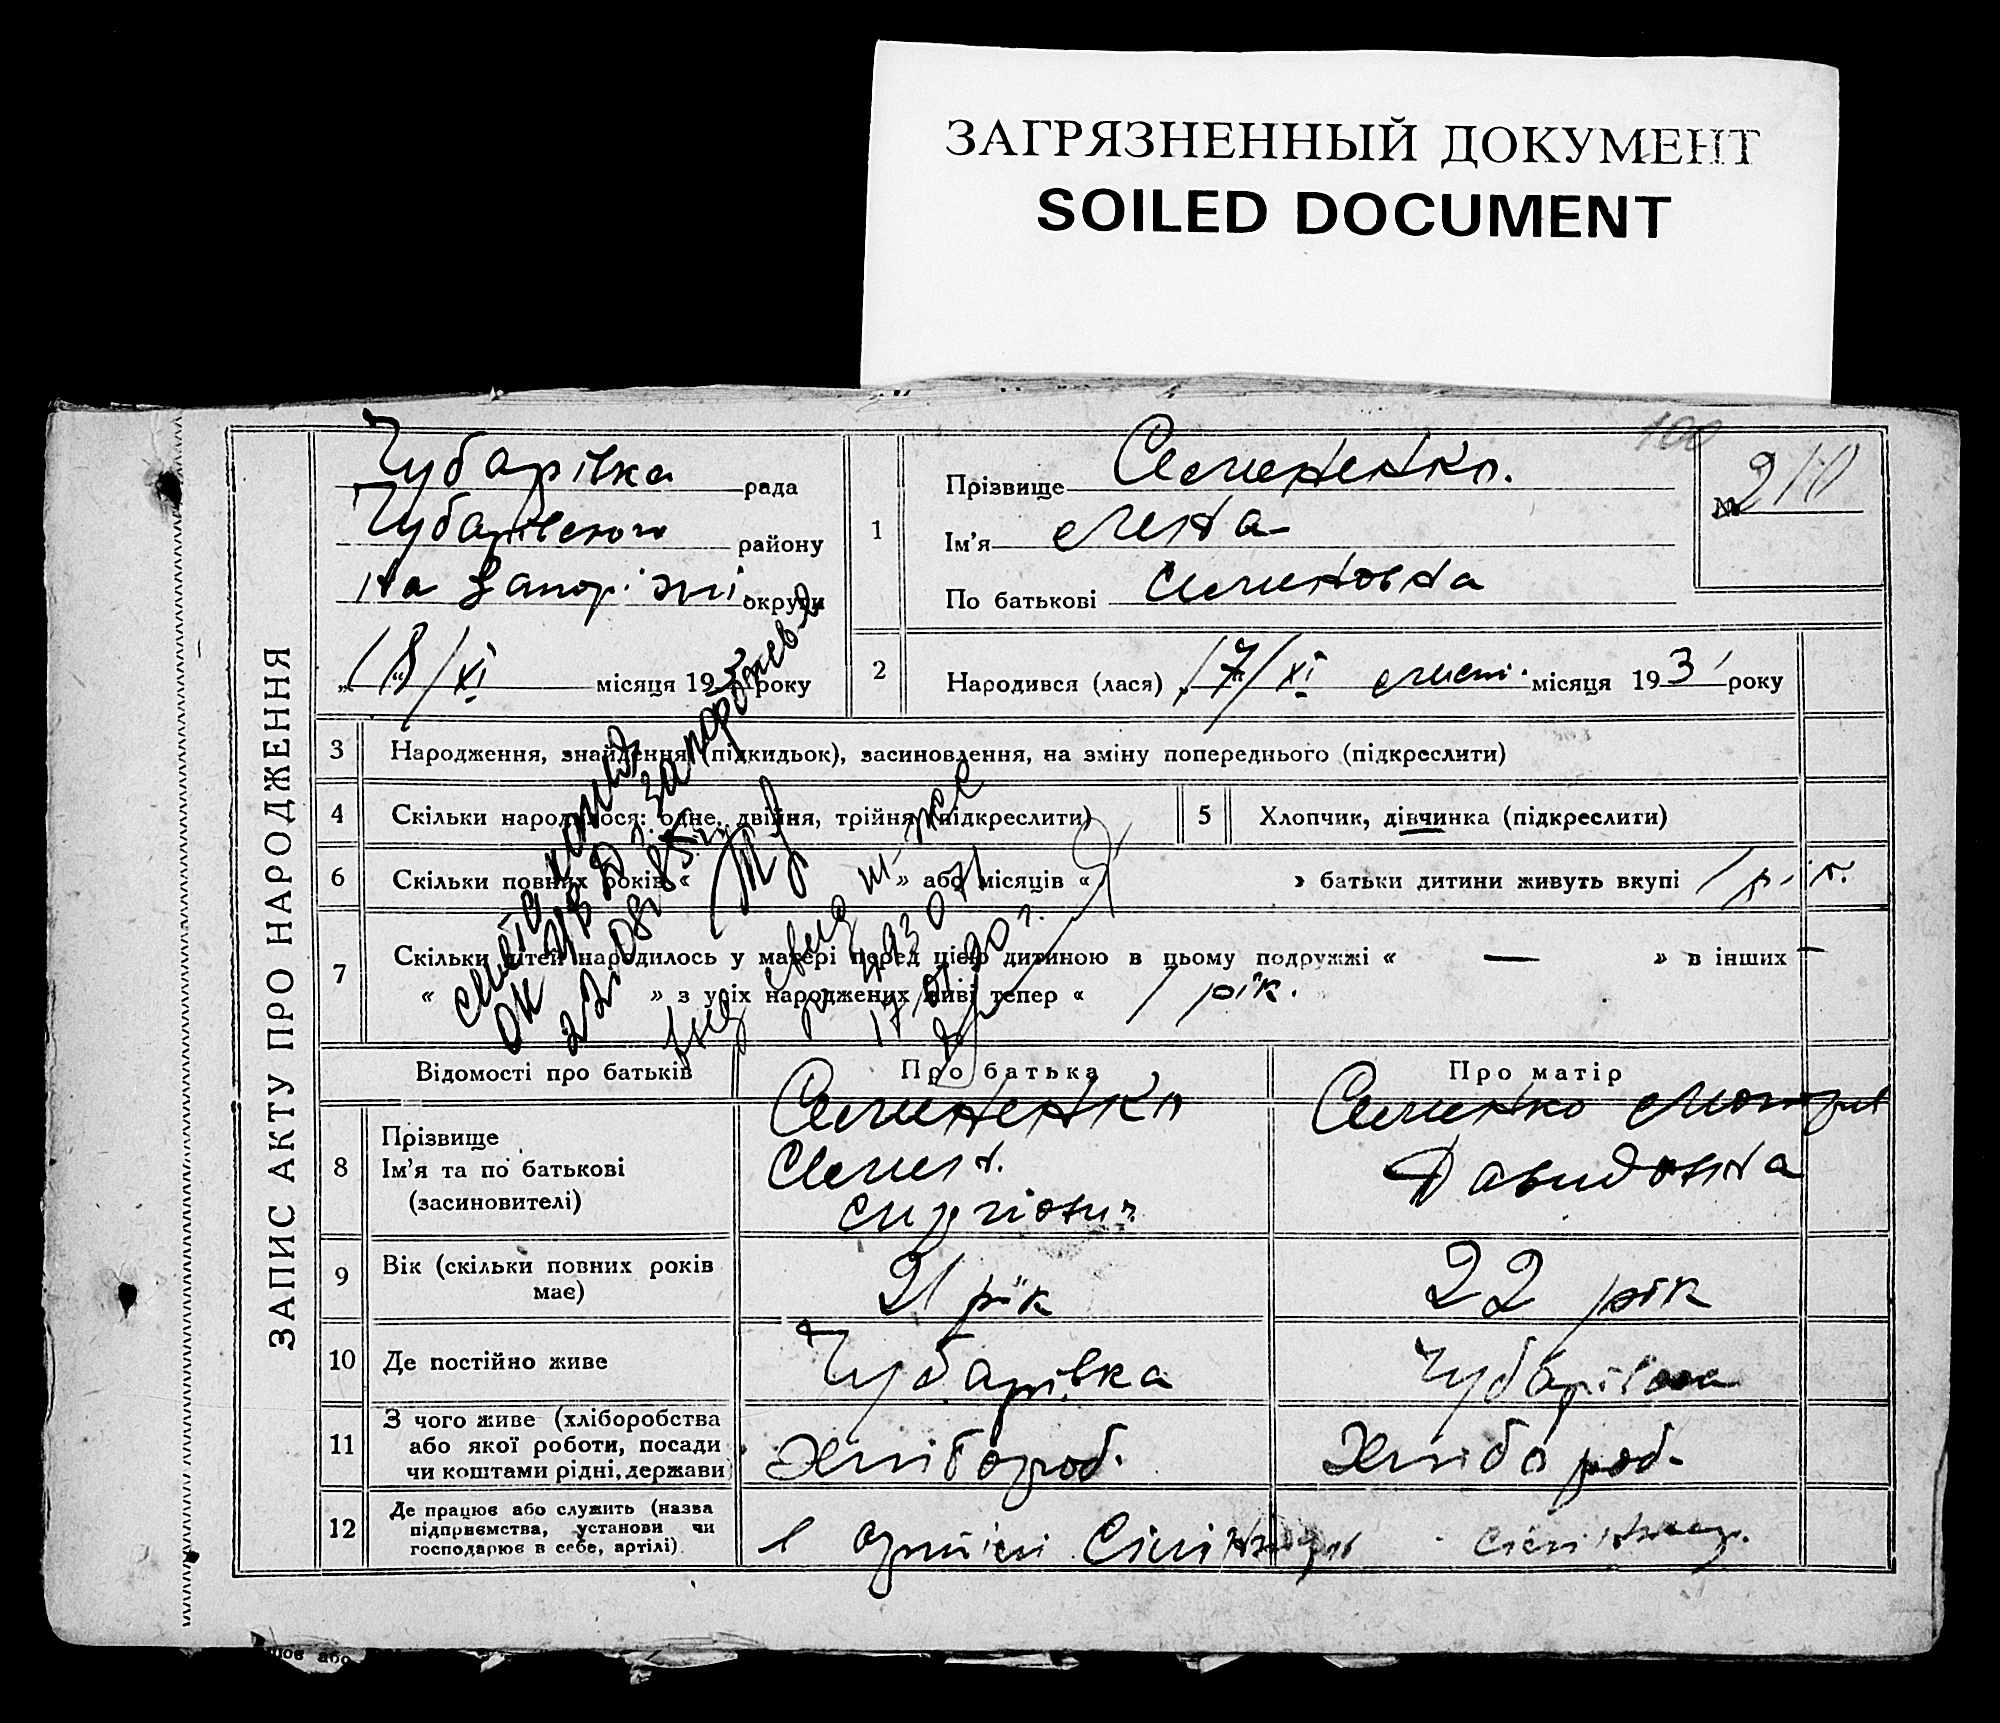 ЗАГРЯЗНЕННЫЙ ДОКУМЕНТ
SOILED DOCUMENT
100
ЗАПИС АКТУ ПРО НАРОДЖЕННЯ
Чубарівка рада
Чубарівського району
на Запоріжжі округи
„18/XI місяця 193 року
1
Прізвище Семененко.
Ім'я
По батькові Семеновна
№ 210
2
Народився (лася) „17/XI лист. місяця 1931 року
3 Народження, знайдення (підкидьок), засиновлення, на зміну попереднього (підкреслити)
4 Скільки народилося: одне, двійня, трійня (підкреслити)
5 Хлопчик, дівчинка (підкреслити)
6 Скільки повних років « » або місяців « » батьки дитини живуть вкупі 1 рік.
7 Скільки дітей народилось у матері перед цією дитиною в цьому подружжі « — » в інших —
« » з усіх народжених живі тепер « 1 рік.
снята копия
17.01.90 г.
Відомості про батьків
Про батька
Про матір
8 Прізвище
Ім'я та по батькові
(засиновителі)
Семененко
Семен
Семененко
Давидовна
9 Вік (скільки повних років
має)
21 рік
22 рік
10 Де постійно живе
Чубарівка
Чубарівка
11 З чого живе (хліборобства
або якої роботи, посади
чи коштами рідні, держави)
Хлібороб.
Хлібороб.
12 Де працює або служить (назва
підприємства, установи чи
господарює в себе, артілі)
в артілі